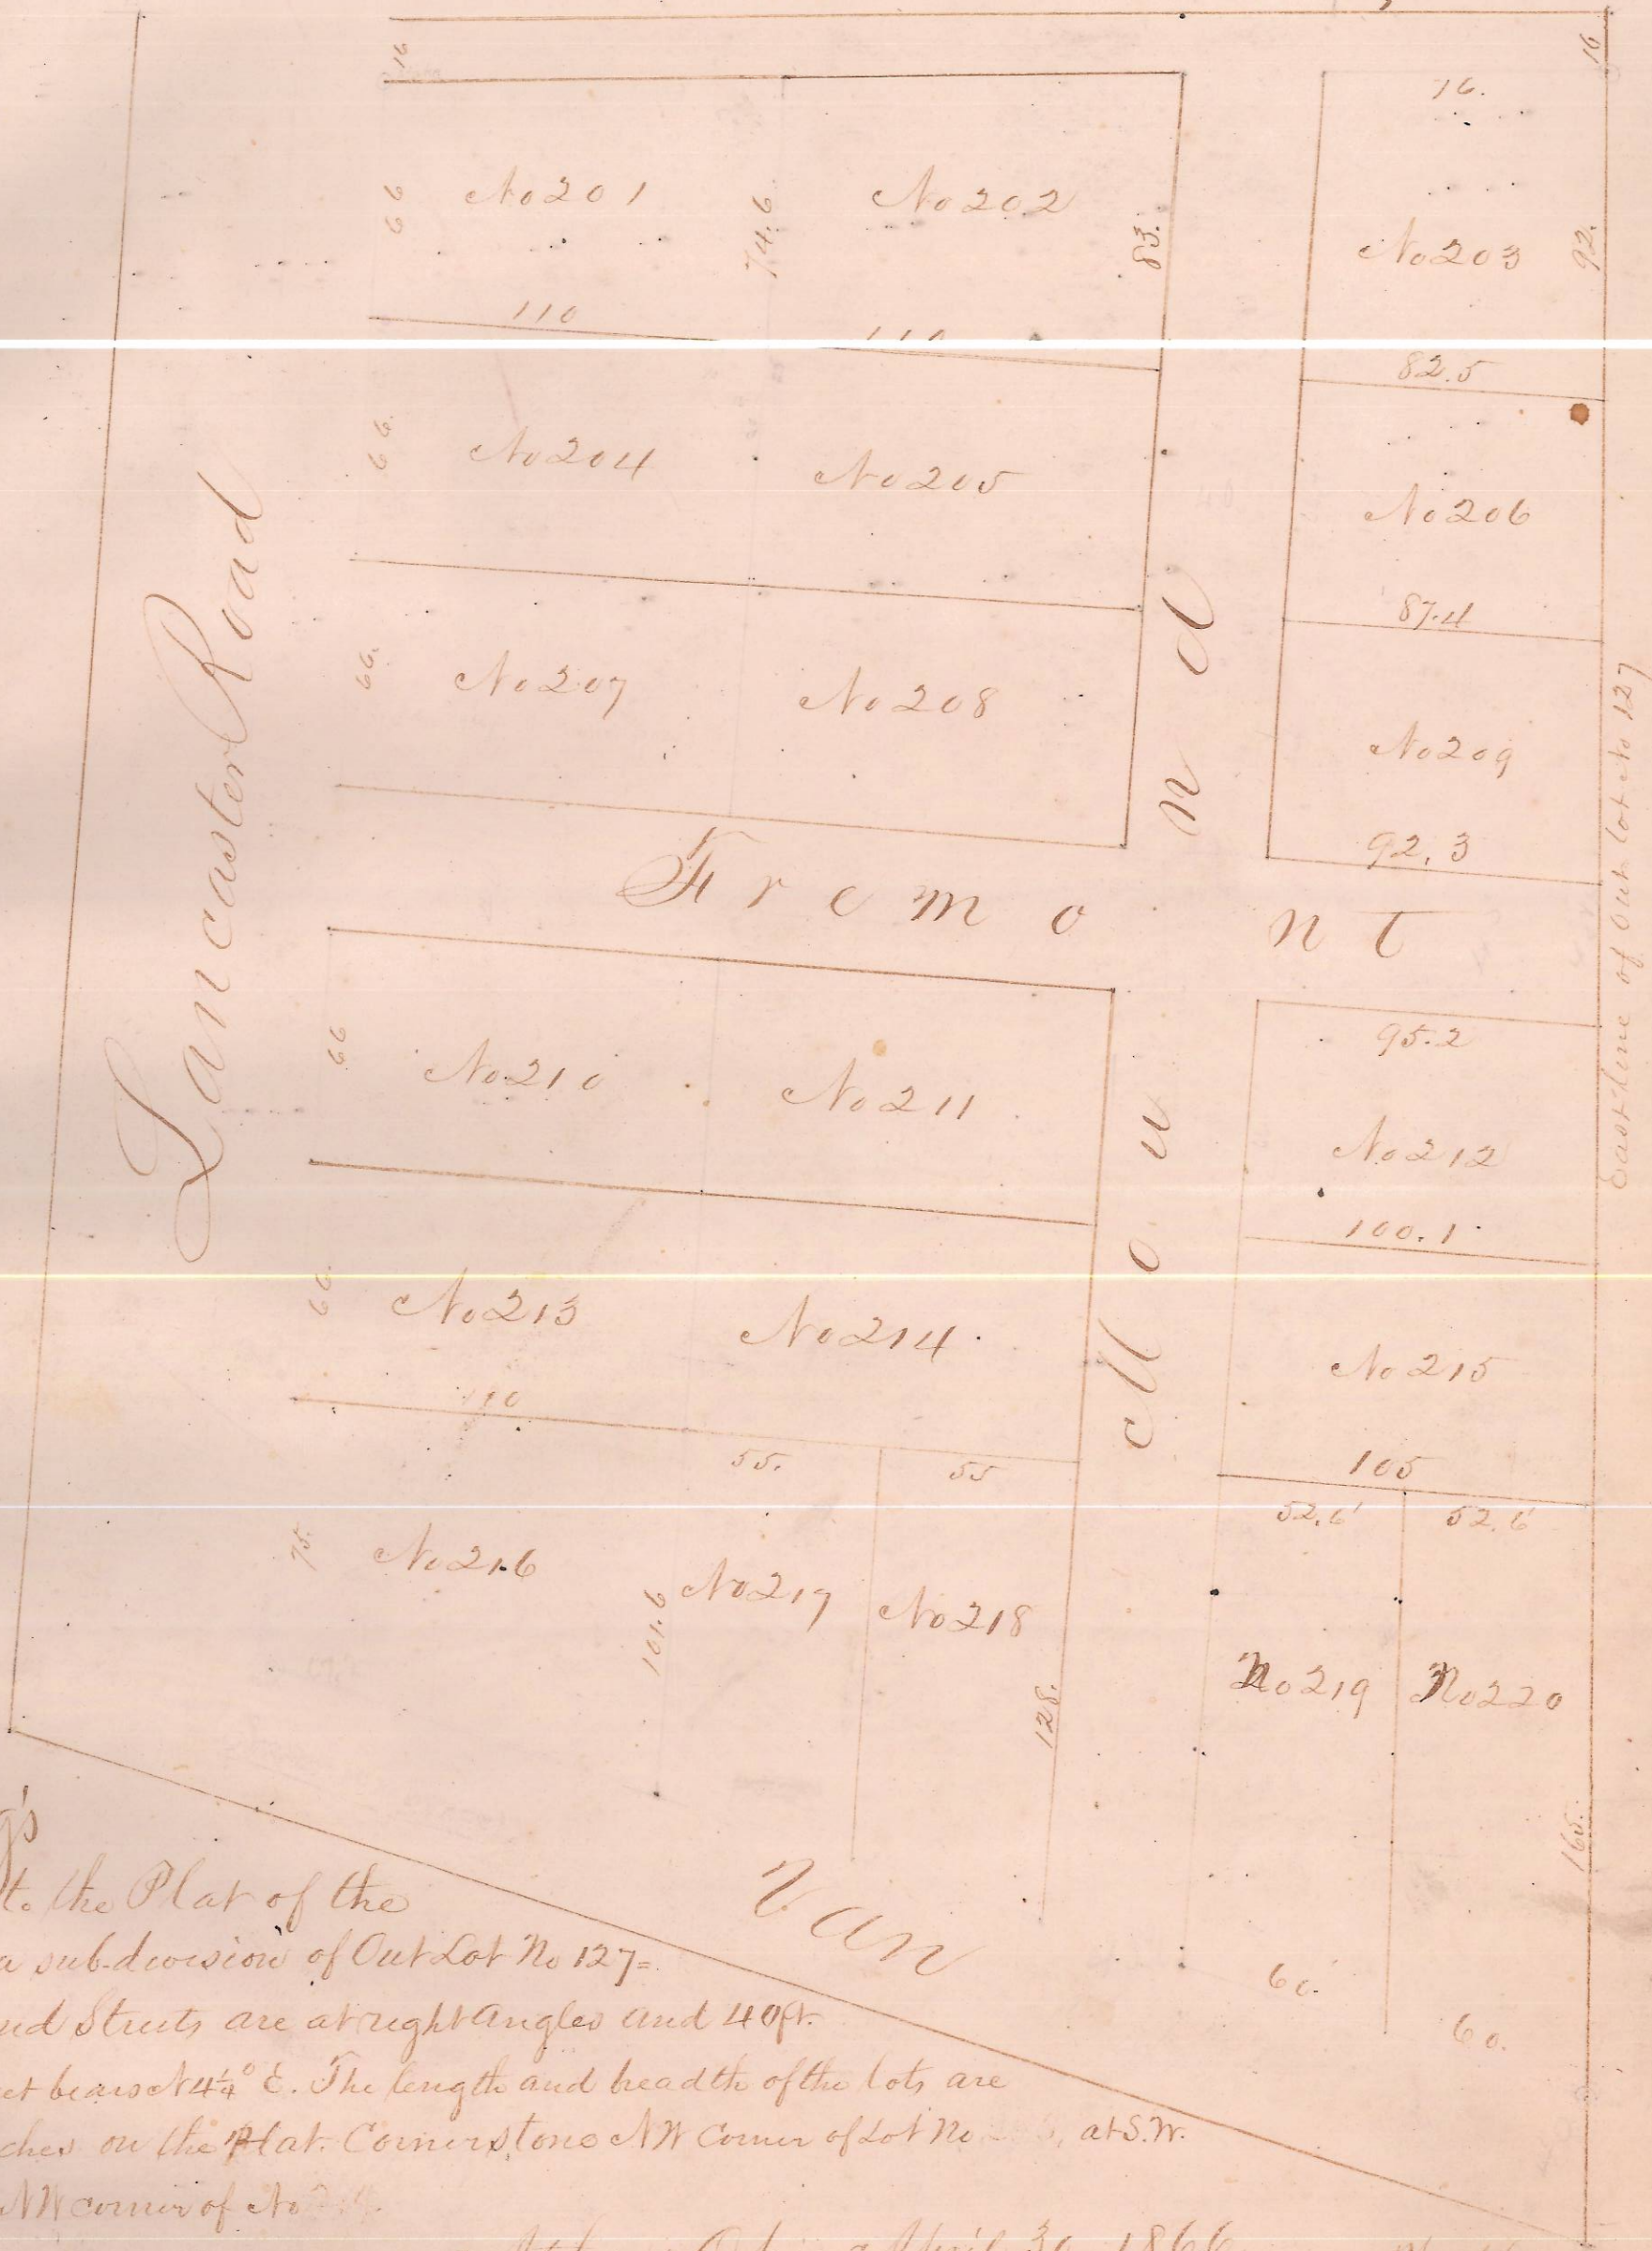 16
16
76.
No 201
66
74.6
No 202
83.
No 203
92.
110
110
82.5
66.
No 204
No 205
No 206
87.4
66.
No 207
No 208
No 209
92.3
Lancaster Road
Fremont
Mound
East line of Out lot No 127
95.2
66
No 210
No 211
No 212
100.1
66.
No 213
No 214
No 215
110
55.
55
105
52.6'
52.6'
75.
No 216
101.6
No 217
No 218
128.
No 219
No 220
165.
Van
60.
60.
g's
to the Plat of the
a sub-division of Out Lot No 127=
nd Streets are at right angles and 40 ft.
et bears N 4¼° E. The length and breadth of the lots are
ches on the Plat. Corner stone NW Corner of Lot No at S.W.
NW corner of No
April 30 1866